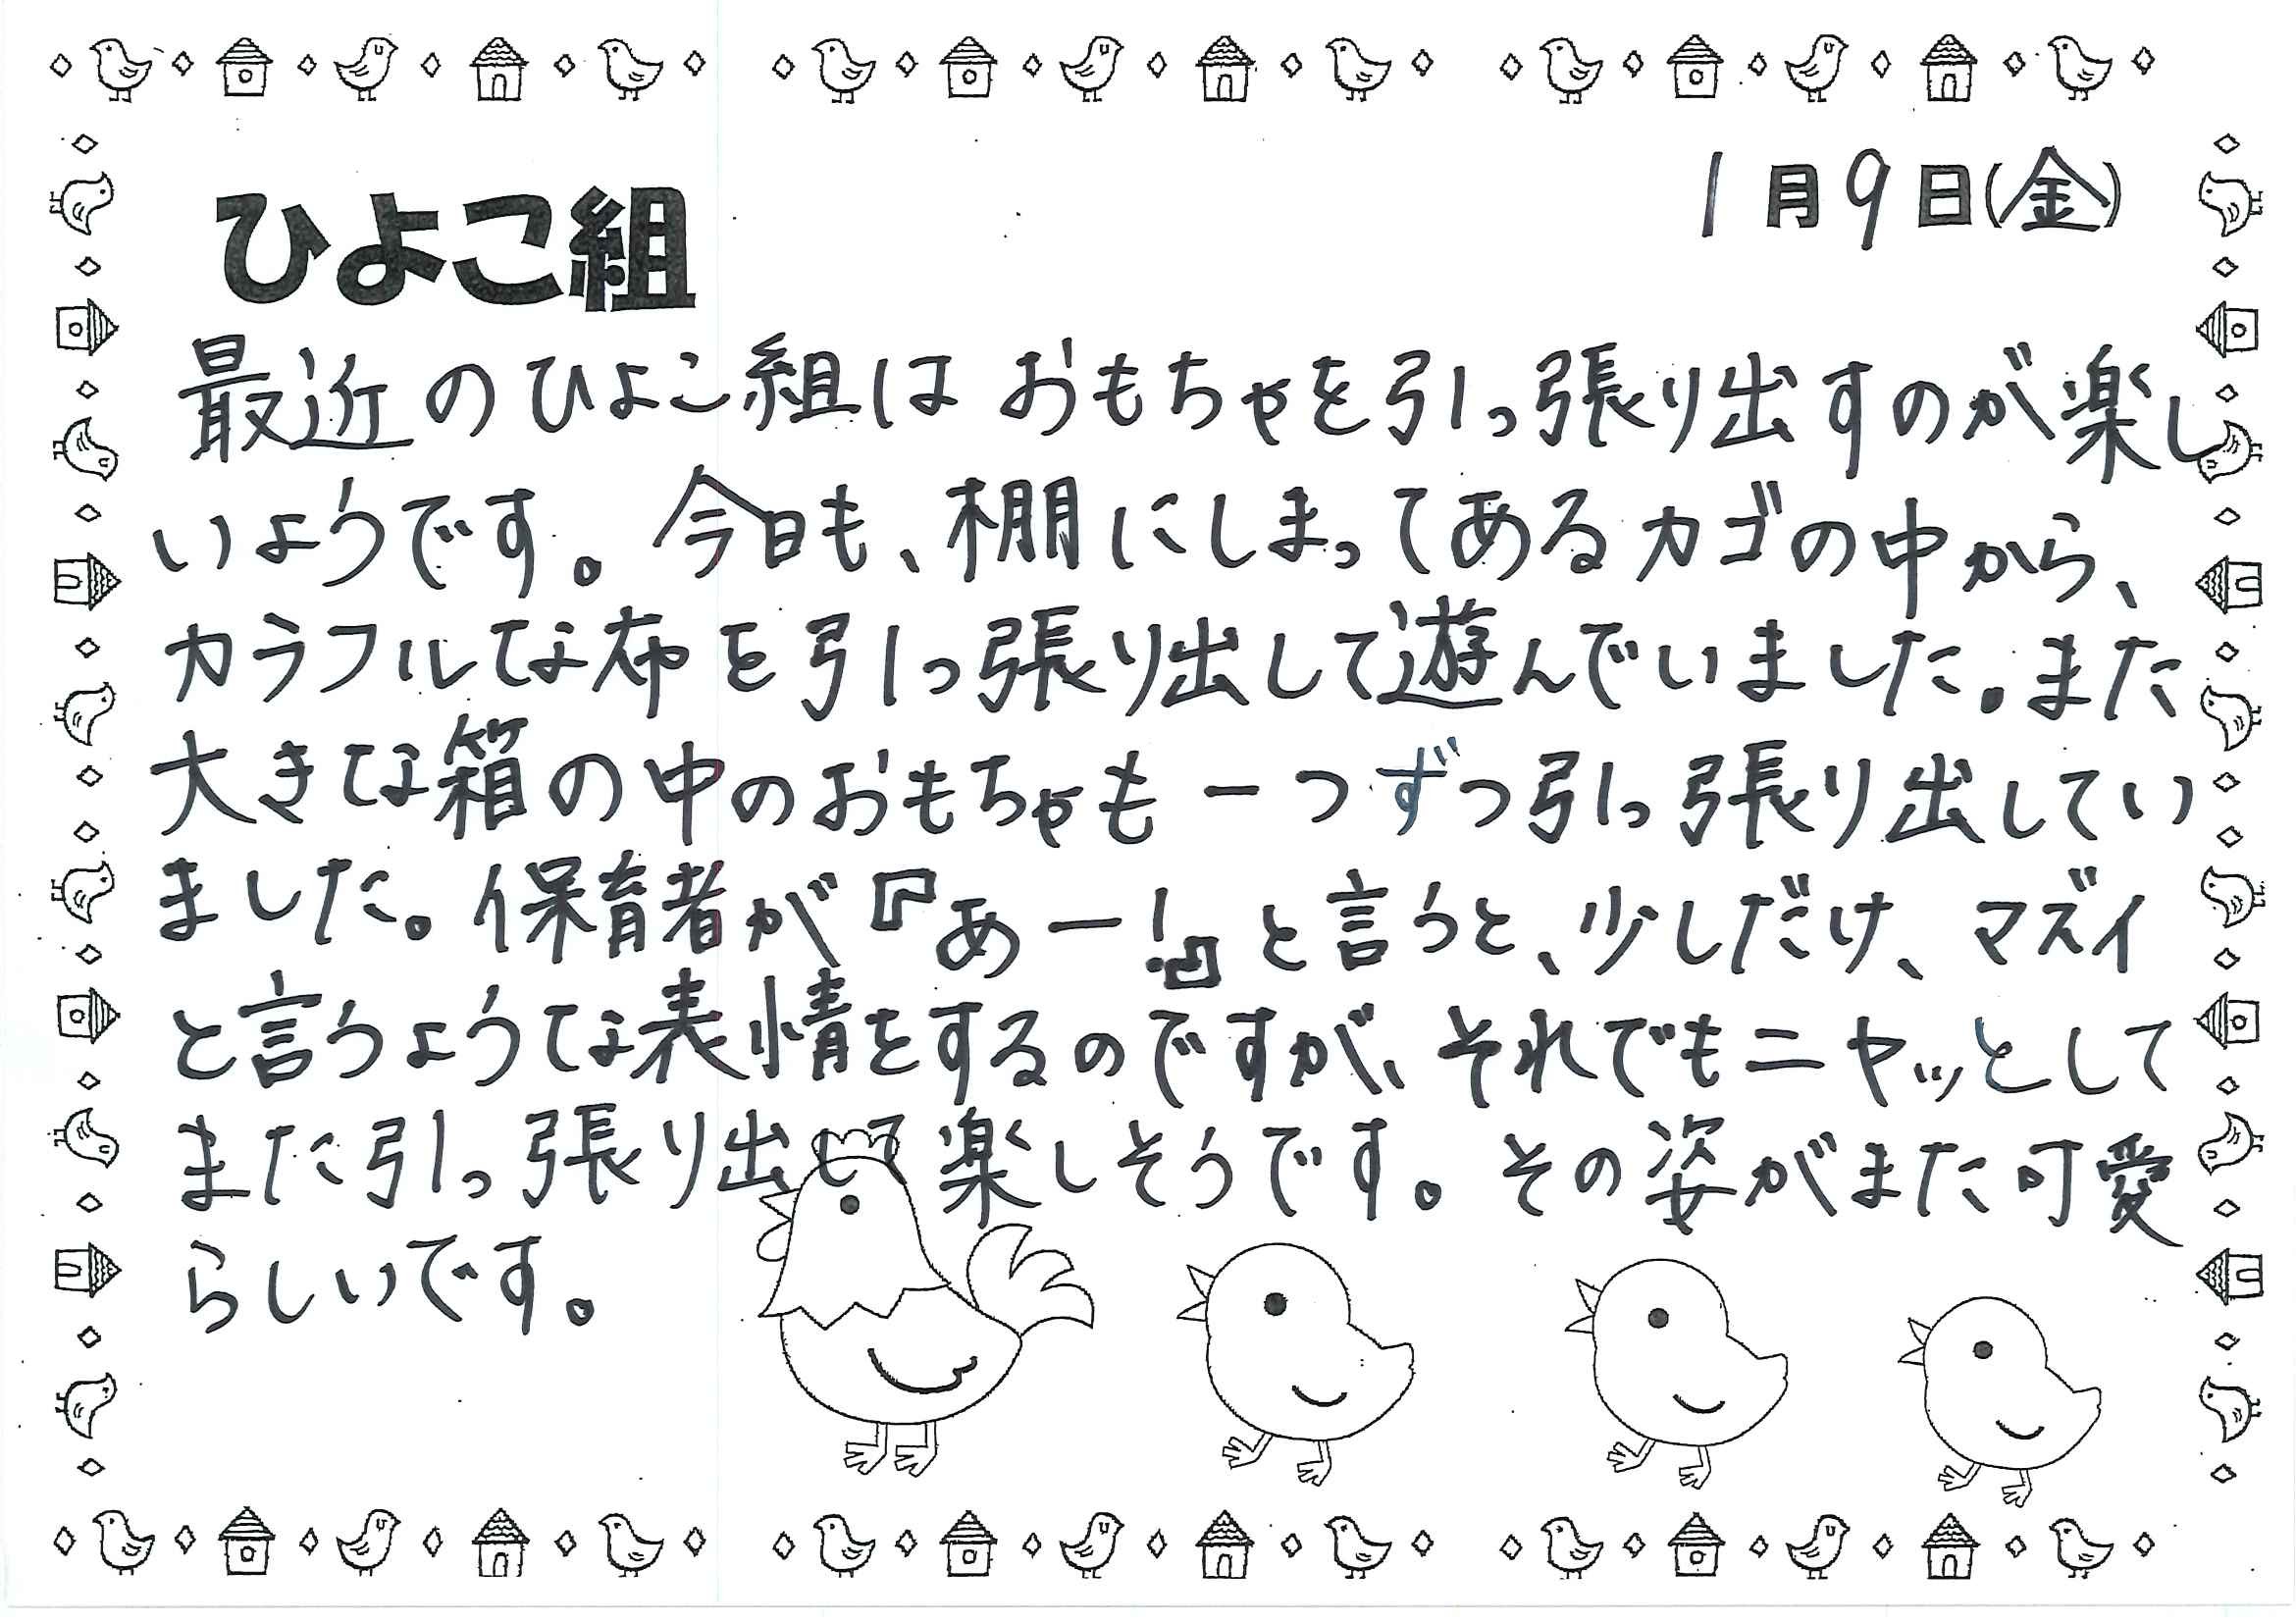 1月9日(金)
ひよこ組
最近のひよこ組はおもちゃを引っ張り出すのが楽し
いようです。今日も、棚にしまってあるカゴの中から、
カラフルな布を引っ張り出して遊んでいました。また
大きな箱の中のおもちゃも一つずつ引っ張り出してい
ました。保育者が『あー!』と言うと、少しだけ、マズイ
と言うような表情をするのですが、それでもニヤッとして
また引っ張り出して楽しそうです。その姿がまた可愛
らしいです。